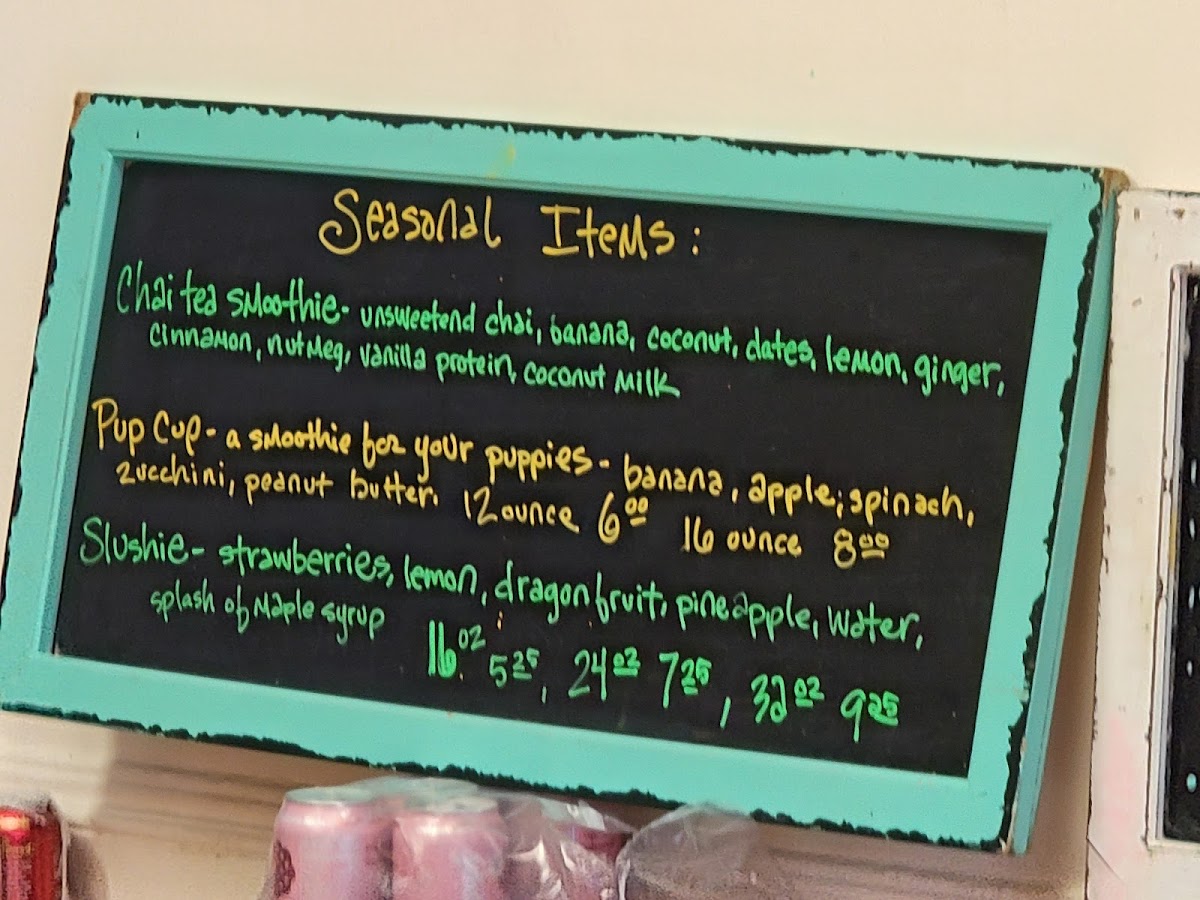 Seasonal Items:
Chai tea smoothie- unsweetend chai, banana, coconut, dates, lemon, ginger,
cinnamon, nutmeg, vanilla protein, coconut milk
Pup Cup- a smoothie for your puppies- banana, apple, spinach,
zucchini, peanut butter. 12 ounce 6.00 16 ounce 8.00
Slushie- strawberries, lemon, dragonfruit, pineapple, water,
splash of maple syrup
16oz 5.25, 24oz 7.25, 32oz 9.25